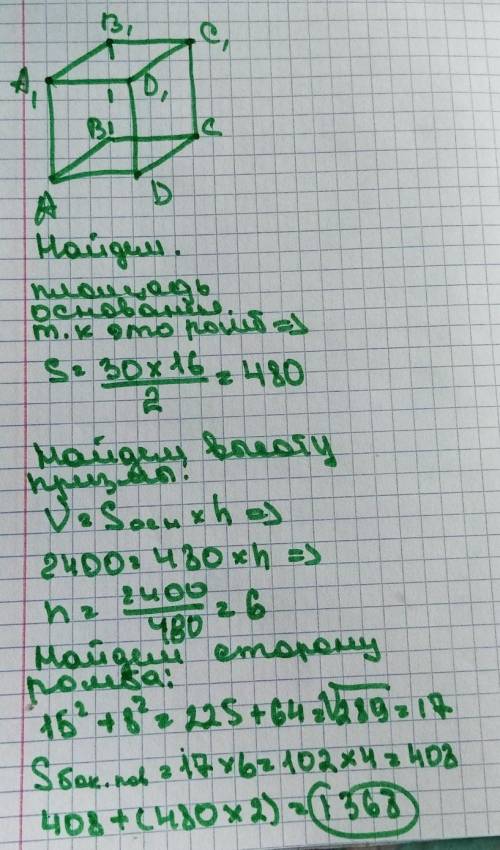 B₁ C₁
A₁ D₁
B C
A D
Найдем.
площадь
основания.
т.к это ромб =>
S = 30×16/2 = 480
Найдем высоту
призмы:
V = Sосн × h =>
2400 = 480 × h =>
h = 2400/480 = 6
Найдем сторону
ромба:
15² + 8² = 225 + 64 = √289 = 17
Sбок.пов = 17×6 = 102×4 = 408
408 + (480×2) = 1368